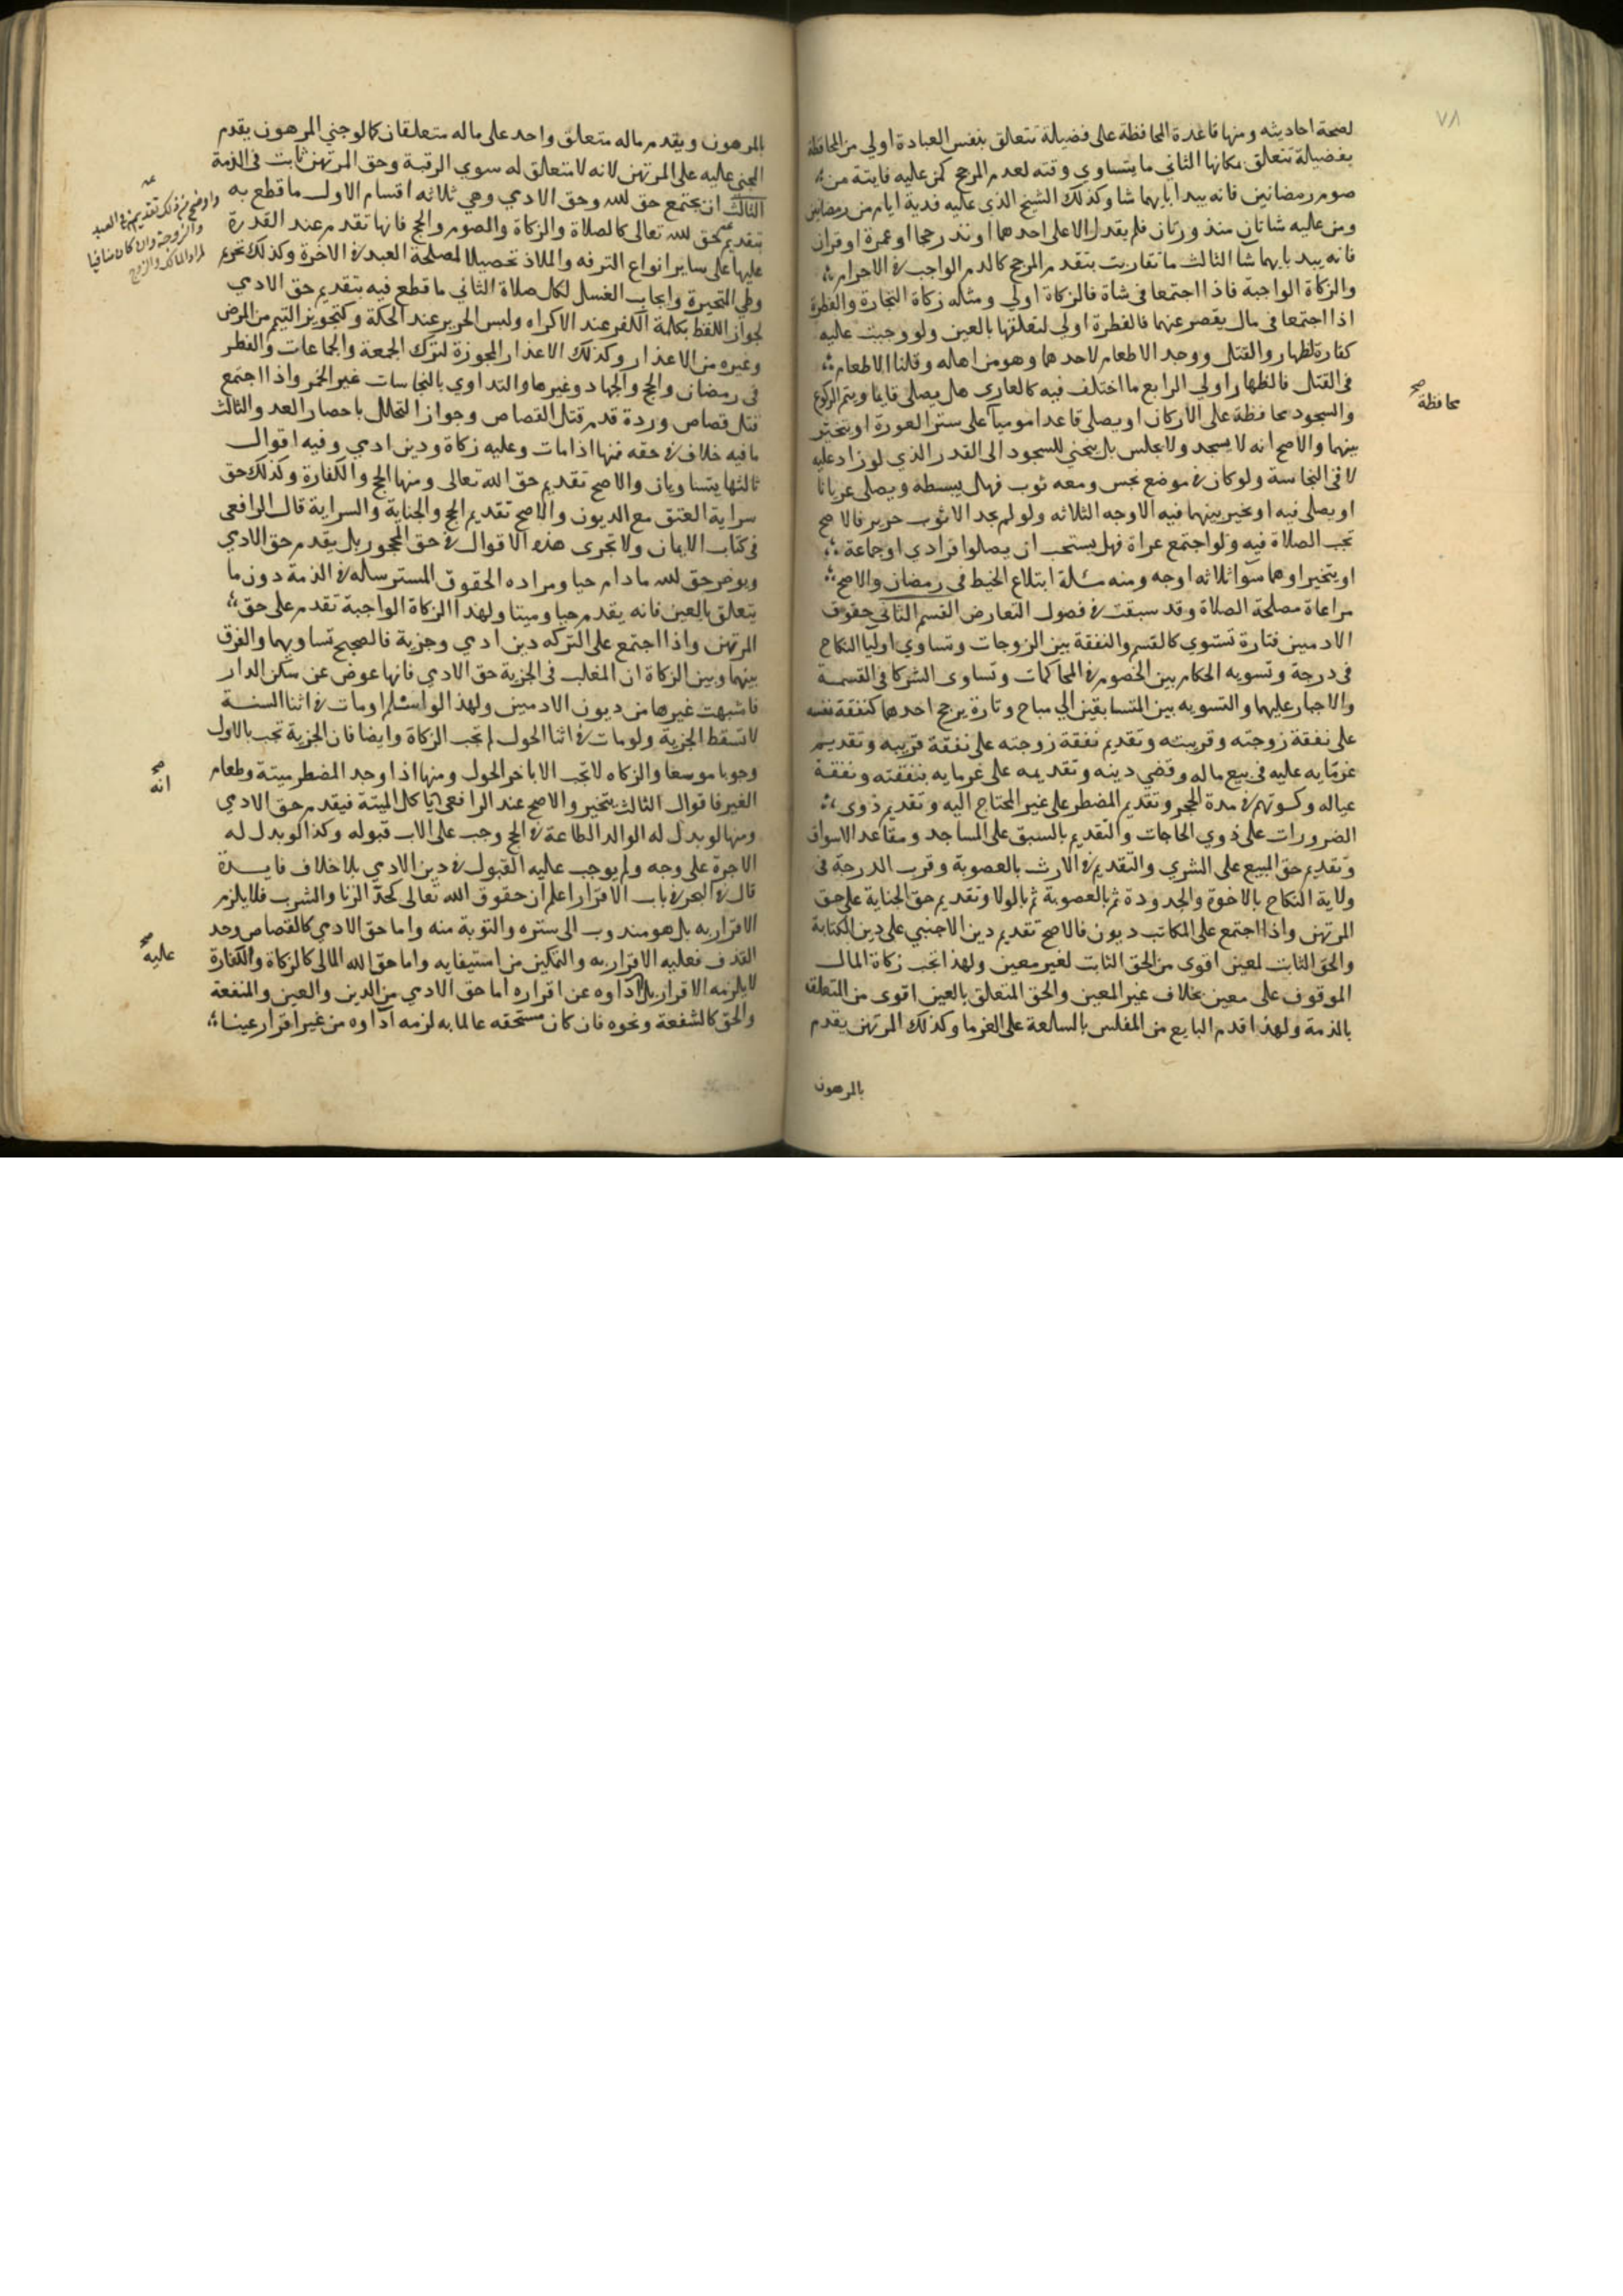 ٧٨
لصحة احاديثه ومنها قاعدة المحافظة على فضيلة تتعلق بنفس العبادة اولي من المحافظة
بفضيلة تتعلق بمكانها الثاني ما يتساوي وقته لعدم المرجح كمن عليه فايتة من
صوم رمضانين فانه يبدا بايهما شا وكذلك الشيخ الذي عليه فدية ايام من رمضانين
ومن عليه شاتان منذورتان فلم يقدر الا على احدهما او نذر حجا او عمرة او قران
فانه يبدا بايهما شا الثالث ما تقاربت بتقدم المرجح كالدم الواجب في الاحرام
والزكاة الواجبة فاذا اجتمعا في شاة فالزكاة اولي ومثله زكاة التجارة والفطرة
اذا اجتمعا في مال يقصر عنهما فالفطرة اولى لتعلقها بالعين ولو وجبت عليه
كفارة لظهار والقتل ووجد الاطعام لاحدهما وهو من اهله وقلنا الاطعام
في القتل فالظهار اولي الرابع ما اختلف فيه كالعاري هل يصلى قايما ويتم الركوع
والسجود محافظة على الاركان او يصلى قاعدا موميا على ستر العورة او يتخير
محافظة صح
بينهما والاصح انه لا يسجد ولا يجلس بل ينحني للسجود الى القدر الذي لو زاد عليه
لاقى النجاسة ولو كان في موضع نجس ومعه ثوب فهل يبسطه ويصلى عريانا
او يصلى فيه او يخير بينهما فيه الاوجه الثلاثه ولو لم يجد الا ثوب حرير فالاصح
تجب الصلاة فيه ولو اجتمع عراة فهل يستحب ان يصلوا فرادي او جماعة
او يتخير او هما سوا ثلاثه اوجه ومنه مسئلة ابتلاع الخيط في رمضان والاصح
مراعاة مصلحة الصلاة وقد سبقت في فصول التعارض القسم الثاني حقوق
الادميين فتارة تستوي كالقسم والنفقة بين الزوجات وتساوي اوليا النكاح
في درجة وتسويه الحكام بين الخصوم في المحاكمات وتساوى الشركا في القسمة
والاجبار عليها والتسويه بين المتسابقين الي مباح وتارة يرجح احدهما كنفقة نفسه
على نفقة زوجته وقريبته وتقديم نفقة زوجته على نفقة قريبه وتقديم
غرمايه عليه في بيع ماله وقضي دينه وتقديمه على غرمايه بنفقته ونفقة
عياله وكسوتهم في مدة الحجر وتقديم المضطر على غير المحتاج اليه وتقديم ذوى
الضرورات على ذوي الحاجات والتقديم بالسبق على المساجد ومقاعد الاسواق
وتقديم حق البيع على الشري والتقديم في الارث بالعصوبة وقرب الدرجة في
ولاية النكاح بالاخوة والجدودة ثم بالعصوبة ثم بالولا وتقديم حق الجناية على حق
المرتهن واذا اجتمع على المكاتب ديون فالاصح تقديم دين الاجنبي على دين الكتابة
والحق الثابت لمعين اقوى من الحق الثابت لغير معين ولهذا تجب زكاة المال
الموقوف على معين بخلاف غير المعين والحق المتعلق بالعين اقوى من المتعلق
بالذمة ولهذا قدم البايع من المفلس بالسلعة على الغرما وكذلك المرتهن يقدم
بالمرهون
بالمرهون ويقدم ماله متعلق واحد على ماله متعلقان كما لو جني المرهون يقدم
المجني عليه على المرتهن لانه لا متعلق له سوي الرقبة وحق المرتهن ثابت في الذمة
الثالث ان يجتمع حق لله وحق الادمي وهي ثلاثه اقسام الاول ما قطع به
بتقديم حق لله تعالى كالصلاة والزكاة والصوم والحج فانها تقدم عند القدرة
عليها على ساير انواع الترفه والملاذ تحصيلا لمصلحة العبد في الاخرة وكذلك تحريم
وطي المتحيرة وايجاب الغسل لكل صلاة الثاني ما قطع فيه بتقديم حق الادمي
واوضح من ذلك تقديمهن في العبد
والزوجة وان كان منافيا
لمراد المالك والزوج
لجواز اللفظ بكلمة الكفر عند الاكراه ولبس الحرير عند الحكة وكتجويز التيمم من المرض
وغيره من الاعذار وكذلك الاعذار المجوزة لترك الجمعة والجماعات والفطر
في رمضان والحج والجهاد وغيرها والتداوي بالنجاسات غير الخمر واذا اجتمع
قتل قصاص وردة قدم قتل القصاص وجواز التحلل باحصار العدو والثالث
ما فيه خلاف في حقه فمنها اذا مات وعليه زكاة ودين ادمي وفيه اقوال
ثالثها يتساويان والاصح تقديم حق الله تعالى ومنها الحج والكفارة وكذلك حق
سراية العتق مع الديون والاصح تقديم الحج والجناية والسراية قال الرافعى
في كتاب الايمان ولا تجرى هذه الاقوال في حق المحجور بل يقدم حق الادمي
ويوخر حق لله ما دام حيا ومراده الحقوق المسترسله في الذمة دون ما
يتعلق بالعين فانه يقدم حيا وميتا ولهذا الزكاة الواجبة تقدم على حق
المرتهن واذا اجتمع على التركه دين ادمي وجزية فالصحيح تساويهما والفرق
بينها وبين الزكاة ان المغلب في الجزية حق الادمي فانها عوض عن سكن الدار
فاشبهت غيرها من ديون الادميين ولهذا لو اسلم او مات في اثنا السنة
لا تسقط الجزية ولو مات في اثنا الحول لم تجب الزكاة وايضا فان الجزية تجب بالاول
وجوبا موسعا والزكاه لا تجب الا باخر الحول ومنها اذا وجد المضطر ميتة وطعام
الغير فاقوال الثالث يتخير والاصح عند الرافعى ياكل الميتة فيقدم حق الادمي
انه صح
ومنها لو بذل له الوالد الطاعة في الحج وجب على الاب قبوله وكذا لو بذل له
الاجرة على وجه ولم يوجب عليه القبول في دين الادمي بلا خلاف فايدة
قال في البحر في باب الاقرار اعلم ان حقوق الله تعالى كحد الزنا والشرب فلا يلزم
الاقرار به بل هو مندوب الى ستره والتوبة منه واما حق الادمي كالقصاص وحد
القذف فعليه الاقرار به والتمكين من استيفايه واما حق الله المالى كالزكاة والكفارة
عليه صح
لا يلزمه الاقرار بل اداوه عن اقراره اما حق الادمي من الدين والعين والمنفعة
والحق كالشفعة ونحوه فان كان مستحقه عالما به لزمه اداوه من غير اقرار عينا